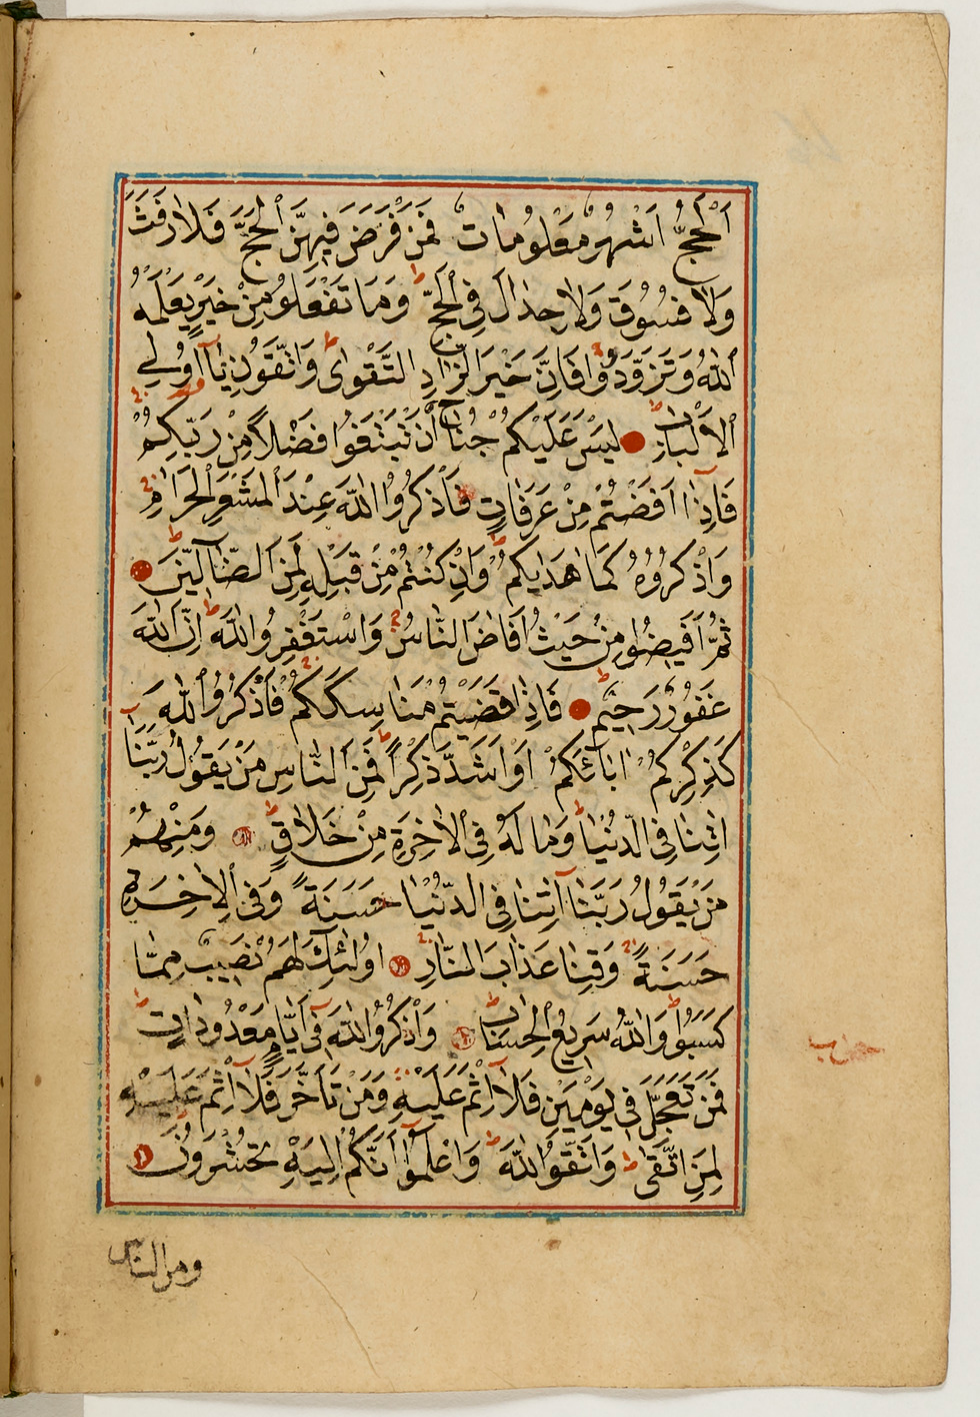 اَلْحَجُّ اَشْهُرٌ مَعْلُومَاتٌ فَمَنْ فَرَضَ فِيهِنَّ الْحَجَّ فَلَا رَفَثَ
وَلَا فُسُوقَ وَلَا جِدَالَ فِي الْحَجِّ ط وَمَا تَفْعَلُوا مِنْ خَيْرٍ يَعْلَمْهُ
اللّٰهُ وَتَزَوَّدُوا فَاِنَّ خَيْرَ الزَّادِ التَّقْوٰى ط وَاتَّقُونِ يَآ اُولِي
الْاَلْبَابِ ط لَيْسَ عَلَيْكُمْ جُنَاحٌ اَنْ تَبْتَغُوا فَضْلًا مِنْ رَبِّكُمْ
فَاِذَآ اَفَضْتُمْ مِنْ عَرَفَاتٍ فَاذْكُرُوا اللّٰهَ عِنْدَ الْمَشْعَرِ الْحَرَامِ
وَاذْكُرُوهُ كَمَا هَدٰيكُمْ وَاِنْ كُنْتُمْ مِنْ قَبْلِهِ لَمِنَ الضَّآلِّينَ ط
ثُمَّ اَفِيضُوا مِنْ حَيْثُ اَفَاضَ النَّاسُ وَاسْتَغْفِرُوا اللّٰهَ ط اِنَّ اللّٰهَ
غَفُورٌ رَحِيمٌ ط فَاِذَا قَضَيْتُمْ مَنَاسِكَكُمْ فَاذْكُرُوا اللّٰهَ
كَذِكْرِكُمْ اٰبَآئَكُمْ اَوْ اَشَدَّ ذِكْرًا ط فَمِنَ النَّاسِ مَنْ يَقُولُ رَبَّنَآ
اٰتِنَا فِي الدُّنْيَا ط وَمَا لَهُ فِي الْاٰخِرَةِ مِنْ خَلَاقٍ ط وَمِنْهُمْ
مَنْ يَقُولُ رَبَّنَآ اٰتِنَا فِي الدُّنْيَا حَسَنَةً وَفِي الْاٰخِرَةِ
حَسَنَةً وَقِنَا عَذَابَ النَّارِ اُولٰٓئِكَ لَهُمْ نَصِيبٌ مِمَّا
كَسَبُوا ط وَاللّٰهُ سَرِيعُ الْحِسَابِ ط وَاذْكُرُوا اللّٰهَ فِيٓ اَيَّامٍ مَعْدُودَاتٍ ط
فَمَنْ تَعَجَّلَ فِي يَوْمَيْنِ فَلَآ اِثْمَ عَلَيْهِ وَمَنْ تَاَخَّرَ فَلَآ اِثْمَ عَلَيْهِ
لِمَنِ اتَّقٰى ط وَاتَّقُوا اللّٰهَ ط وَاعْلَمُوٓا اَنَّكُمْ اِلَيْهِ تُحْشَرُونَ
حزب
ومن الناس